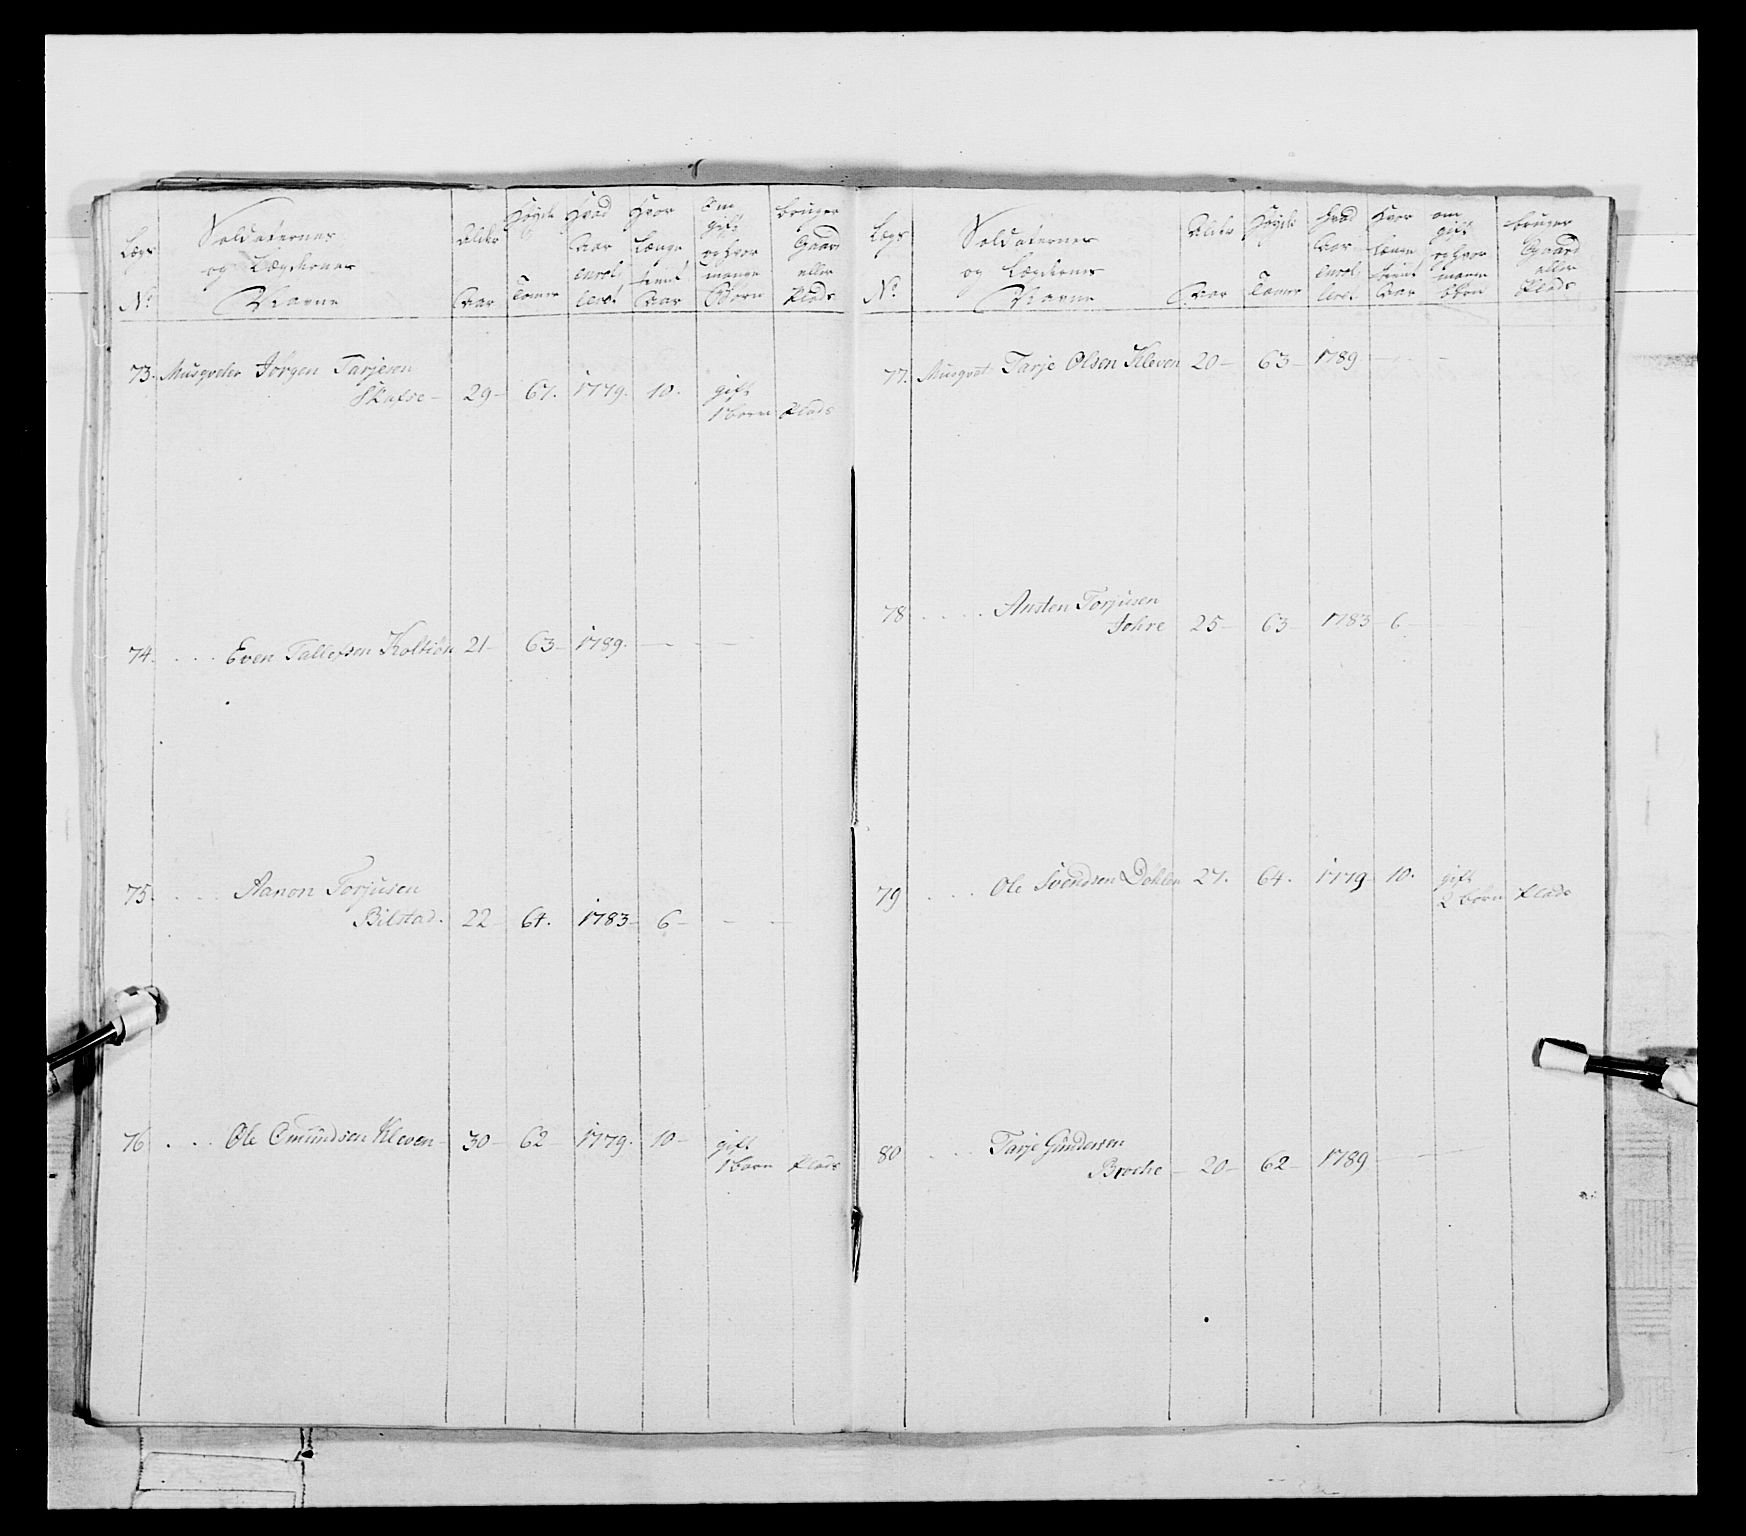 Lægs
N°
Soldaternes
og Lægdernes
Navne
Alder
Aar
Høyde
Tomer
Hvad
Aar
enrol
leret
Hvor
Længe
tient
Aar
Om
gift
og hvor
mange
Børn
bruger
Gaard
eller
Plads
73. Musqveter Jörgen Tarjesen
Skafse - 29 - 67. 1779. 10. gift
1 barn Plads
74. Even Tallefsen 21 - 63 - 1789. - -
75. Aanon Torjusen
Bilstad. 22 - 64. 1783 - 6 - - -
76 Ole Omundsen Kleven - 30 - 62 - 1779. 10 - gift
1 barn Plads
Lægs
N°
Soldaternes
og Lægdernes
Navne
Alder
Aar
Høyde
Tomer
Hvad
Aar
enrol
leret
Hvor
Længe
tient
Aar
om
gift
og hvor
mange
børn
bruger
Gaard
eller
Plads
77. Musqvet Tarje Olsen Kleven 20 - 63 - 1789 - - -
78 Ansten Torjusen
25 - 63 - 1783 - 6 -
79 Ole Svendsen 27. 64. 1779 - 10. gift
2 börn Plads
80 Tarje Gundersen
Broche - 20 - 62 - 1789 - -